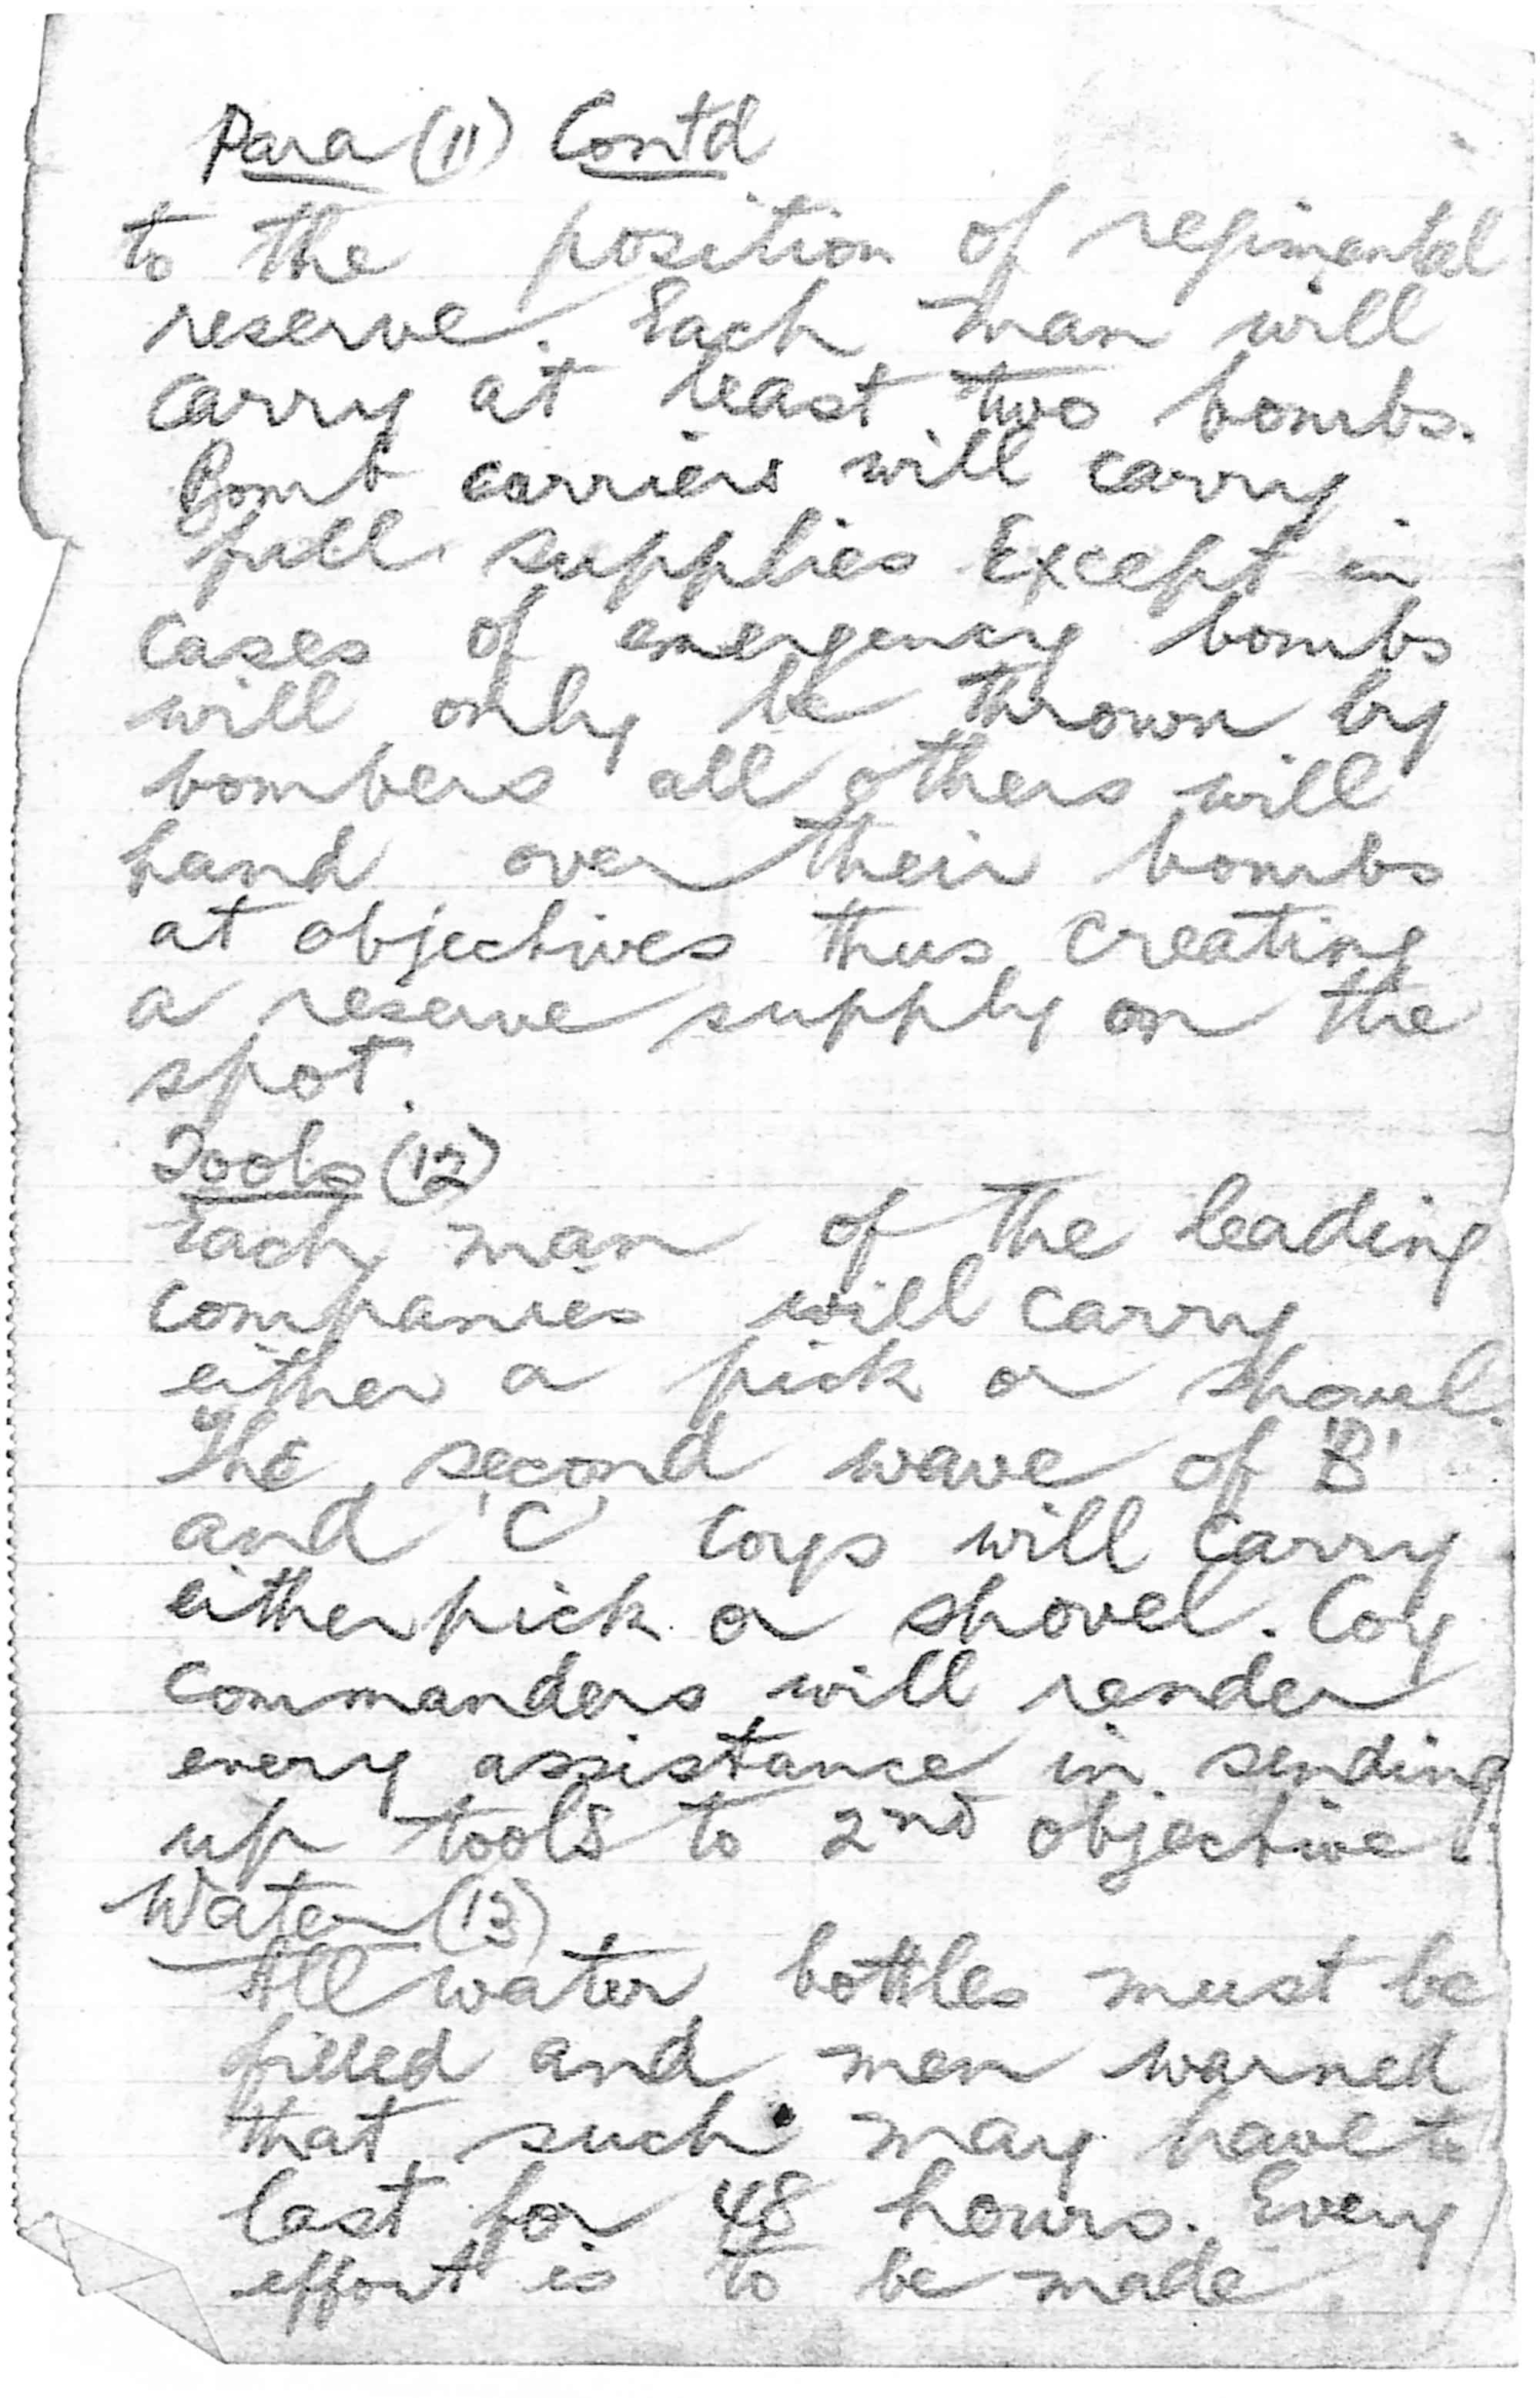 Para (11) Contd
to the position of regimental
reserve. Each man will
carry at least two bombs.
Bomb carriers will carry
full supplies Except in
cases of emergency bombs
will only be thrown by
bombers all others will
hand over their bombs
at objectives thus creating
a reserve supply on the
spot.
Tools (12)
Each man of the leading
companies will carry
either a pick or shovel.
The second wave of 'B'
and 'C' Coys will carry
either pick or shovel. Coy
Commanders will render
every assistance in sending
up tools to 2nd objective.
Water (13)
All water bottles must be
filled and men warned
that such may have to
last for 48 hours. Every
effort is to be made